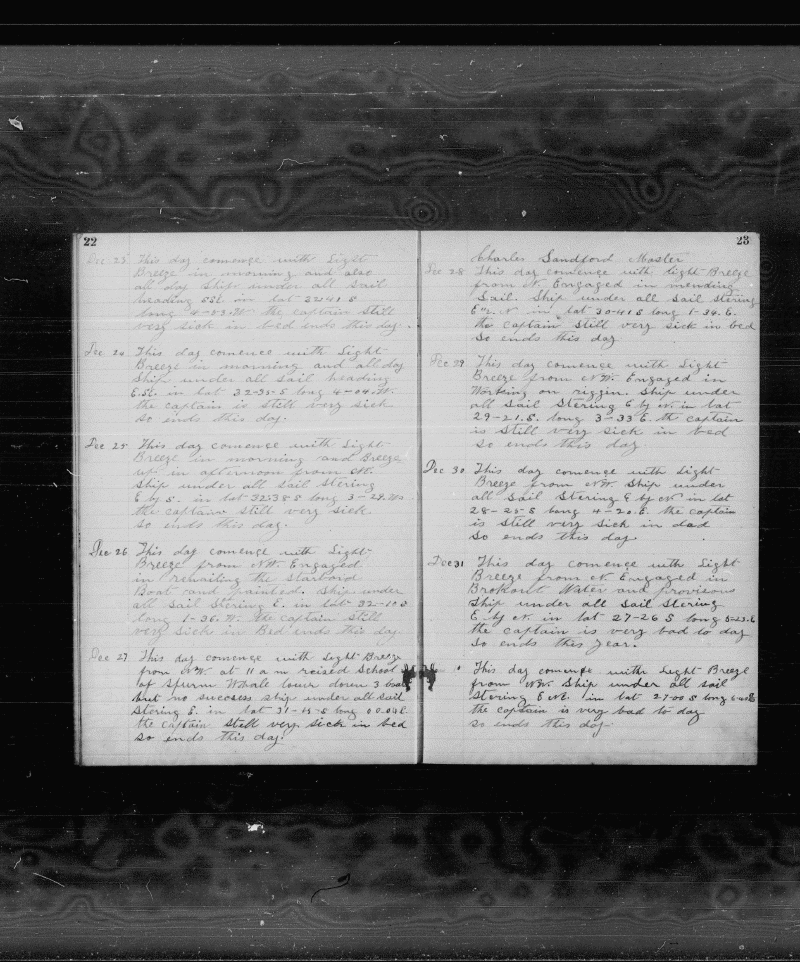 22
Dec 23 This day comence with Light
Breeze in morning and also
all day Ship under all sail
heading SSE in lat 32-41 S
long 4-03 W the captain still
very sick in bed ends this day.
Dec 24 This day comence with Light
Breeze in morning and all day
Ship under all sail heading
E.SE. in lat 32-35-S long 4-04.W.
the captain is still very sick
so ends this day.
Dec 25 This day comence with Light
Breeze in morning and Breeze
up in afternoon from N.
Ship under all sail Stering
E by S. in lat 32-38 S long 3-29.W
the captain still very sick
so ends this day.
Dec 26 This day comence with Light
Breeze from NW. Engaged
in renailing the Starbord
Boat and painted. Ship under
all sail Stering E. in lat 32-10 S
long 1-36. W. the captain still
very sick in Bed ends this day.
Dec 27 This day comence with Light Breeze
from NW. at 11 a m reised School
of Sperm Whale lower down 3 boats
but no success ship under all sail
Stering E. in lat 31-15-S long 00.00 E.
the captain still very sick in bed
so ends this day.
23
Charles Sandford Master
Dec 28 This day comence with light Breeze
from N. Engaged in mending
Sail. Ship under all sail Stering
in lat 30-41 S long 1-34. E.
the captain still very sick in bed
So ends this day
Dec 29 This day comence with Light
Breeze from NW. Engaged in
Working on riggin. Ship under
all sail Stering E by N. in lat
29-21.S. long 3-33 E. the captain
is still very sick in bed
so ends this day
Dec 30 This day comence with Light
Breeze from NW. Ship under
all sail Stering E by N in lat
28-25-S long 4-20.E. the captain
is still very sick in dad
So ends this day.
Dec 31 This day comence with Light
Breeze from N Engaged in
Brokout Water and provisions
Ship under all sail Stering
E by N. in lat 27-26 S long 5-23.E
the captain is very bad to day
so ends this year.
This day comence with Light Breeze
from NW. Ship under all sail
Stering E NE. in lat 27-00 S long
the captain is very bad to day
so ends this day